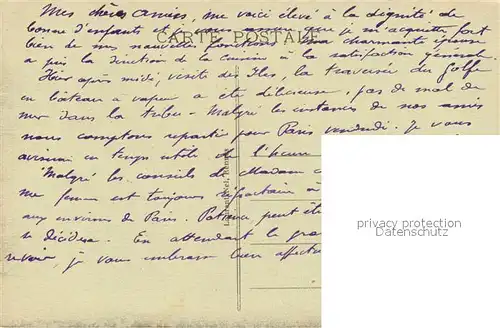 Mes chères amies, me voici élevé à la dignité de
bonne d'enfants je m'acquitte fort
CARTE POSTALE
bien de mes nouvelles fonctions. Ma charmante épouse
a pris la direction de la cuisine à la satisfaction générale.
Hier après midi, visite des Iles, la traversée du Golfe
en bâteau à vapeur a été délicieuse, pas de mal de
mer dans la tribu. Malgré les instances de nos amis
nous comptons repartir pour Paris vendredi. Je vous
aviserai en temps utile de l'heure
Malgré les conseils de Madame
ma femme est toujours réfractaire à
aux environs de Paris. Patience peut être
se décidera. En attendant le
revoir, je vous embrasse bien
privacy protection
www.ansichtskartenversand.com